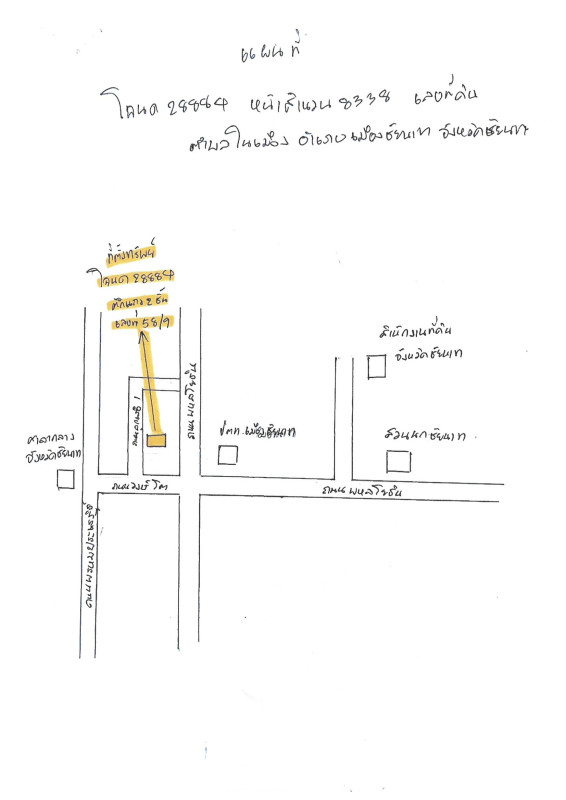 แผนที่
โฉนด 28884 หน้าสำรวจ 8338 เลขที่ดิน
ตำบลในเมือง อำเภอเมืองชัยนาท จังหวัดชัยนาท
ที่ตั้งทรัพย์
โฉนด 28884
ตึกแถว 2 ชั้น
เลขที่ 58/9
สำนักงานที่ดิน
จังหวัดชัยนาท
ถนนพหลโยธิน
ศาลากลาง
จังหวัดชัยนาท
ปตท. เมืองชัยนาท
สวนนกชัยนาท
ถนนวงษ์โต
ถนนพหลโยธิน
ถนนพรหมประเสริฐ